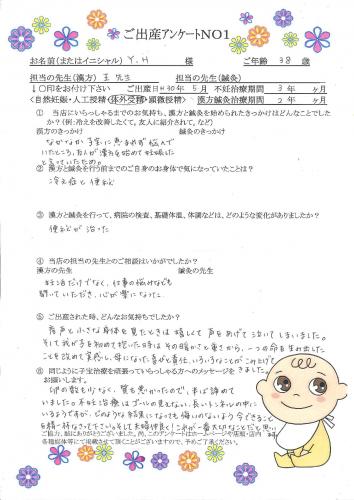 ご出産アンケートNO1
お名前(またはイニシャル) Y.H 様 ご年齢 38 歳
担当の先生(漢方) 王 先生 担当の先生(鍼灸)
↓○印をお付け下さい ご出産日 H30年 5月 不妊治療期間 3年 ヶ月
<自然妊娠・人工授精・体外受精・顕微授精> 漢方鍼灸治療期間 2年 ヶ月
① 当店にいらっしゃるまでのお気持ち、漢方と鍼灸を始められたきっかけはどんなことでした
か?(例:冷えを改善したくて。友人に紹介されて。など)
漢方のきっかけ 鍼灸のきっかけ
なかなか子宝に恵まれず悩んで
いたところ、友人が漢方を始めて妊娠した
と言っていたため。
② 漢方と鍼灸を行う前までのご自身のお身体で気になっていたことは?
冷え症と便秘
③ 漢方と鍼灸を行って、病院の検査、基礎体温、体調などは、どのような変化がありましたか?
便秘が治った
④ 当店の担当の先生とのご相談はいかがでしたか?
漢方の先生 鍼灸の先生
妊活だけでなく、仕事の悩みなども
聞いていただき、心が楽になった
⑤ ご出産された時、どんなお気持ちでしたか?
産声と小さな身体を見たときは嬉しくて声をあげて泣いてしまいました。
そして我が子を初めて抱いた時はその暖かさと重さから、一つの命を生み出した
ことを改めて実感し、母になった喜びと責任、いろいろなことがこみ上げて
⑥ 同じように子宝治療を頑張っていらっしゃる方へのメッセージをきました。
お願いします。
卵の数も少なく、質も悪かったので、半ば諦めて
いました。不妊治療はゴールの見えない、長いトンネルの中に
いるようですが、どのような結果になっても悔いのないよう今できること
を精一杯なさって下さい。そして夫婦仲良く!これが一番大切なことだと思い
ご協力、誠にありがとうございました。尚、このアンケートはホームページや店舗・店内
各種媒体等にて掲載させて頂くことがございますので、予めご了承ください。